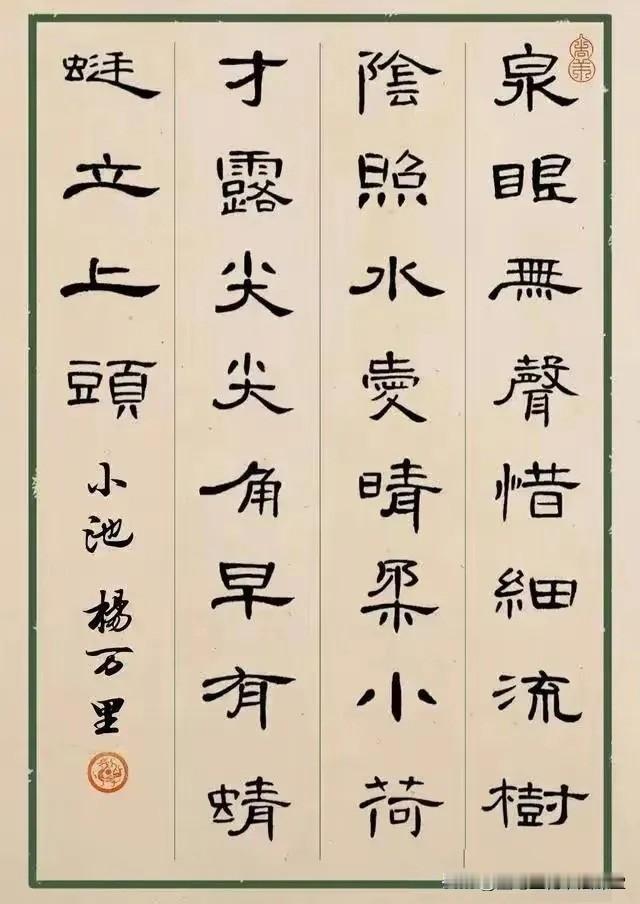 泉眼無聲惜細流樹
陰照水愛晴柔小荷
才露尖尖角早有蜻
蜓立上頭
小池 楊万里